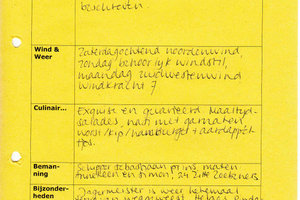 beschreven
Wind & Weer
Zaterdagochtend noordenwind,
zondag behoorlijk windstil,
maandag zuidwestenwind
windkracht 7
Culinair...
Exquise en gevarieerd. Maaltijd-
salades, nasi met garnalen
worst/kip/hamburger + aardappel-
tjes.
Beman-
ning
Schipper prins, maten
en Simon, 24 zeekeners
Bijzonder-
heden
Jagermeister is weer helemaal